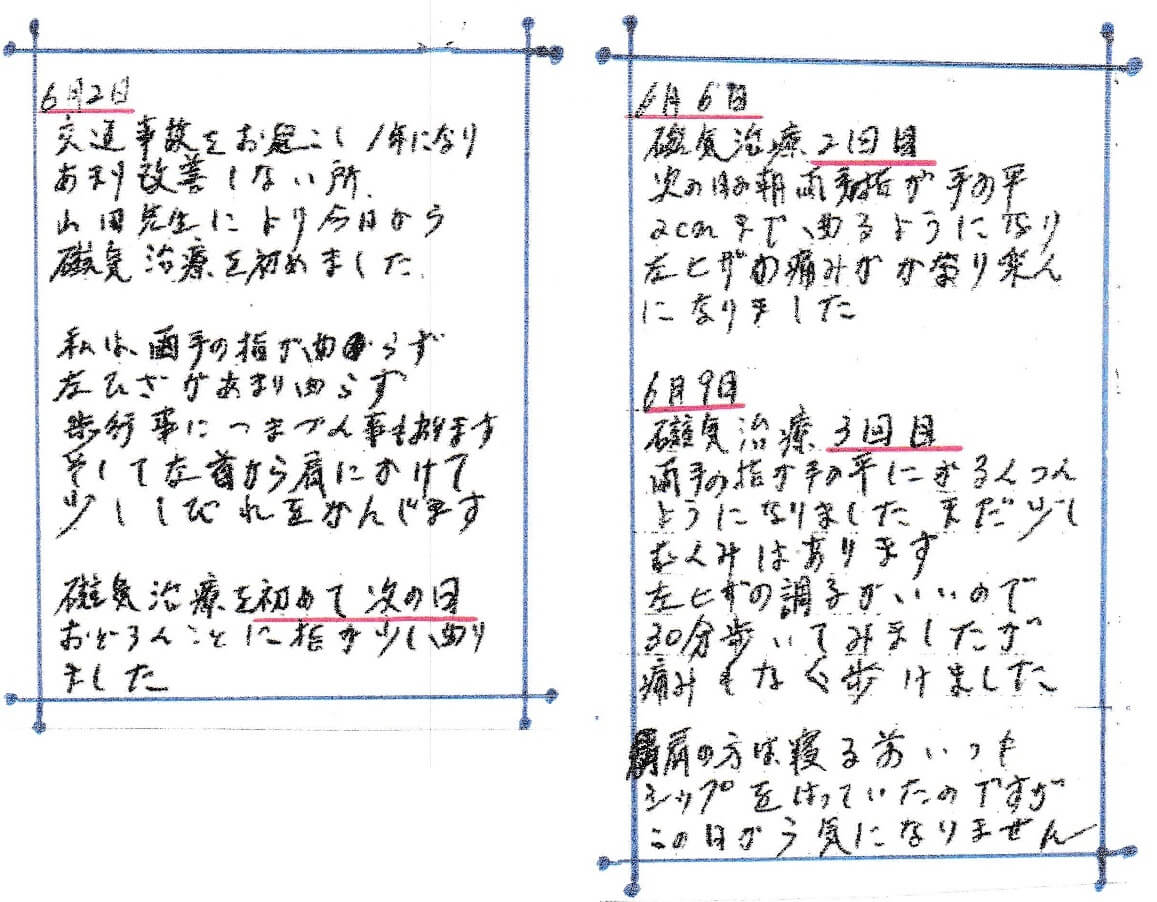 6月2日
交通事故をお起こし1年になり
あまり改善しない所、
山田先生により今日から
磁気治療を初めました、
私は、両手の指が、曲からず
左ひざがあまり曲らず
歩行事につまづく事もあります
そして左首から肩にかけて
少ししびれをかんじます
磁気治療を初めて次の日
おどろくことに指が少し曲り
ました
6月6日
磁気治療2回目
次の日の朝両手指が手の平
2cmまで曲るようになり
左ヒザの痛みがかなり楽
になりました
6月9日
磁気治療3回目
両手の指が手の平に
ようになりました まだ少し
むくみはあります
左ヒザの調子がいいので
30分歩いてみましたが
痛みもなく歩けました
肩の方は寝る前いつも
シップをはっていたのですが
この日から気になりません